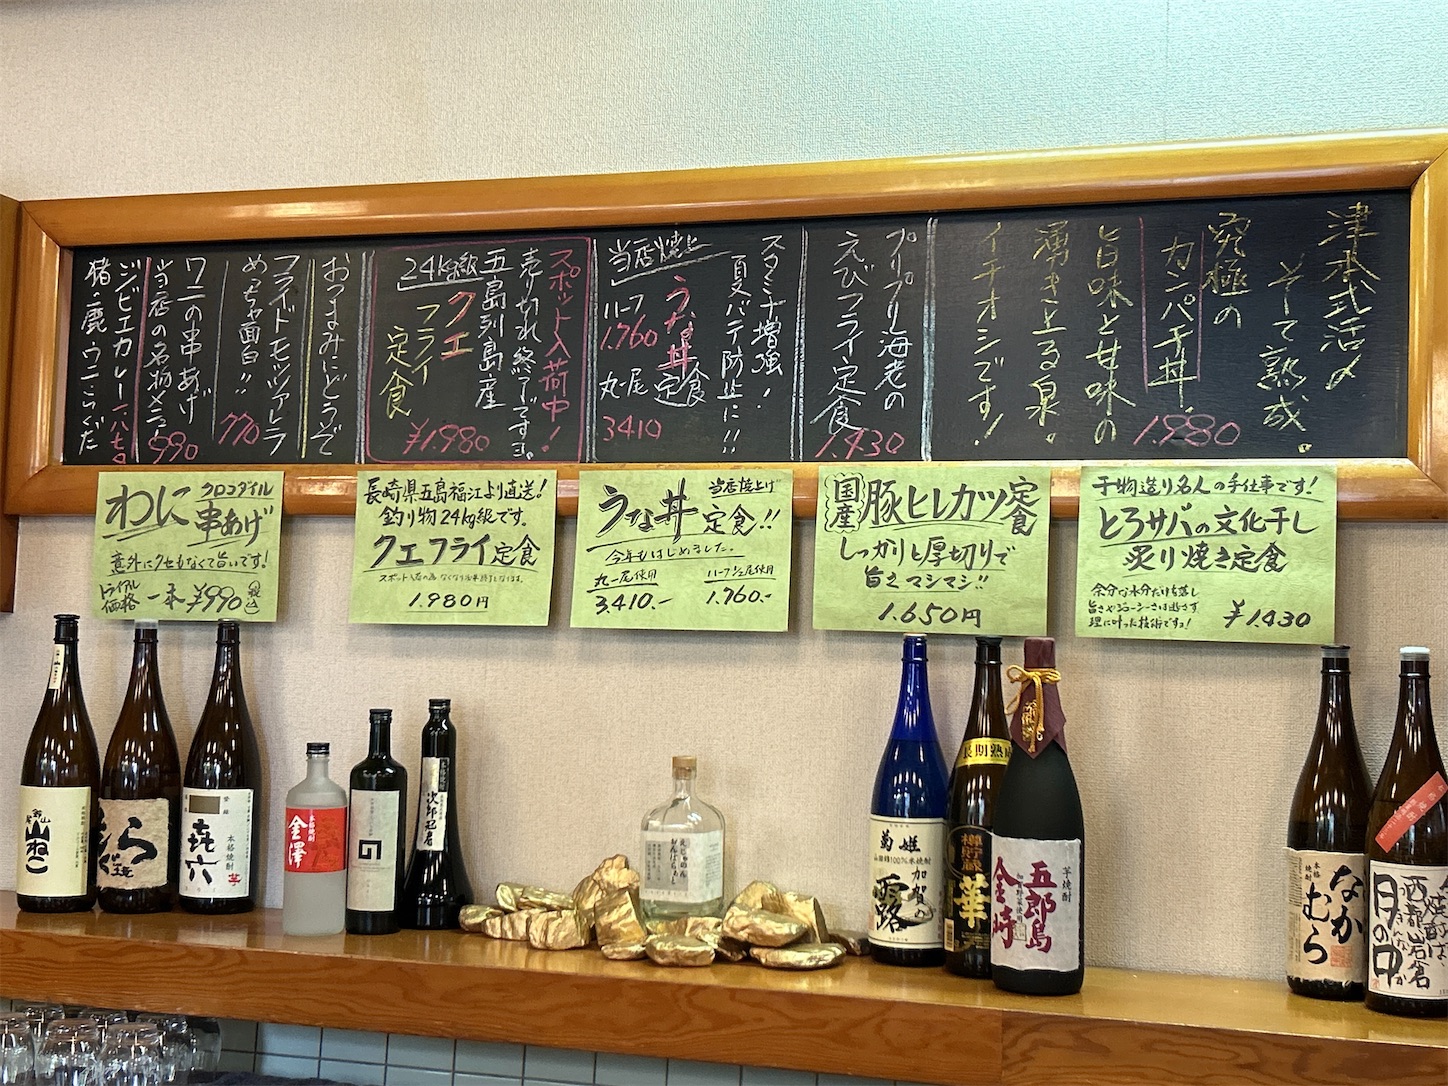 津本式活〆
そして熟成。
究極の
カンパチ丼、
1.980
旨味と甘味の
湧き上る泉。
イチオシです!
プリプリ海老の
えびフライ定食
1.430
スタミナ増強!
夏バテ防止に!!
うな丼定食
当店焼上
ハーフ
1.760
丸一尾
3410
スポット入荷中!
売り切れ終了です。
五島列島産
クエ
フライ
定食
24kg級
¥1.980
おつまみにどうぞ
フライドモッツァレラ
めっちゃ面白!!
770
ワニの串あげ
当店の名物メニュー
990
ジビエカレー
猪・鹿・ワニ
わに
クロコダイル
串あげ
意外にクセもなくて旨いです!
トライアル
価格
一本¥990
税込
長崎県五島福江より直送!
釣り物24kg級です。
クエフライ定食
1.980円
うな丼定食!!
当店焼上げ
今年もはじめました。
丸一尾使用
3.410.-
ハーフ1/2尾使用
1.760.-
国産
豚ヒレカツ定食
しっかりと厚切りで
旨さマシマシ!!
1.650円
干物造り名人の手仕事です!
とろサバの文化干し
炙り焼き定食
余分な水分だけを落し
旨さやジューシーさは逃さず
理に叶った技術ですョ!
¥1.430
山ねこ
㐂六
本格焼酎
芋
本格焼酎
金澤
次郎冠者
菊姫
加賀の
露
長期熟成
樽貯蔵
華
芋焼酎
五郎島
金時
本格焼酎
なかむら
西都岩倉
月の中